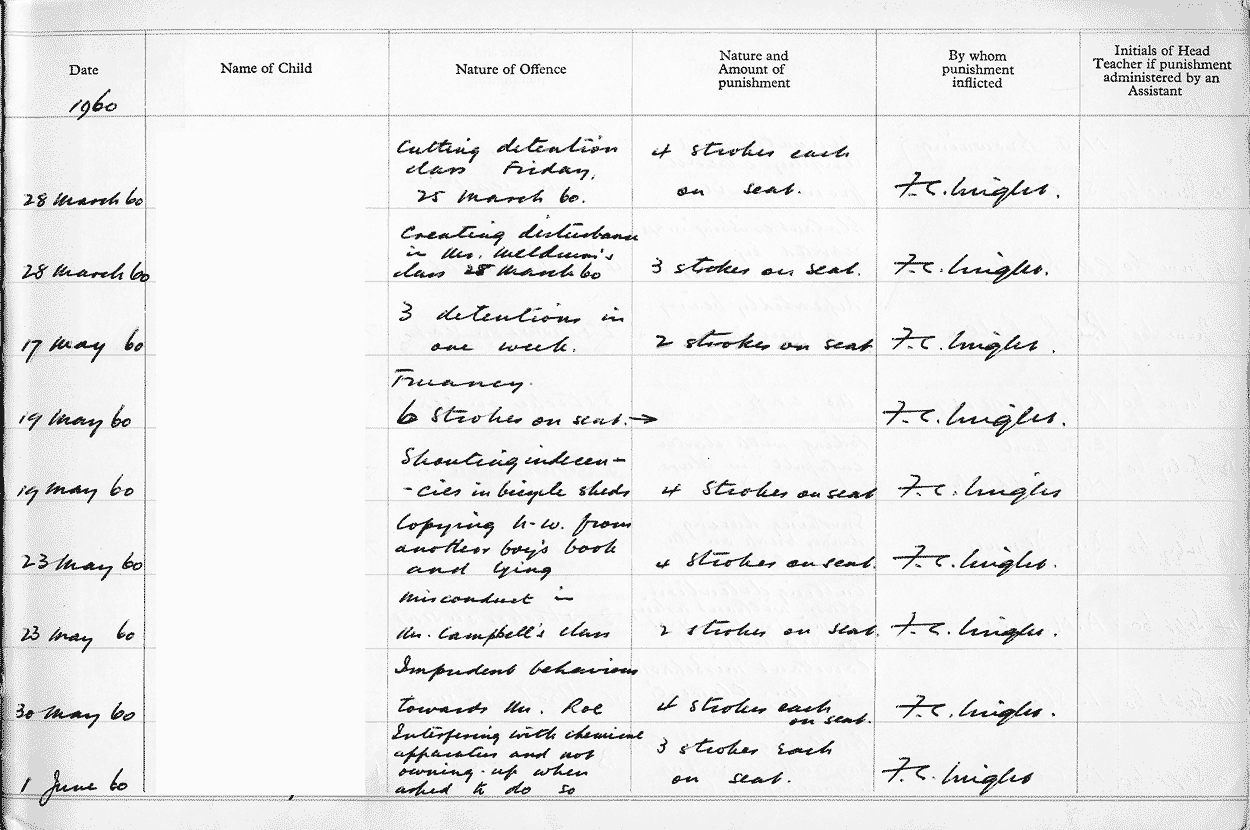 Date
Name of Child
Nature of Offence
Nature and
Amount of
punishment
By whom
punishment
inflicted
Initials of Head
Teacher if punishment
administered by an
Assistant
1960
Cutting detention
class Friday,
25 March 60.
28 March 60
4 strokes each
on seat.
F.C.
Creating disturbance
in Mr.
class 28 March 60
28 March 60
3 strokes on seat.
F.C.
3 detentions in
one week.
17 May 60
2 strokes on seat
F.C.
Truancy.
19 May 60
6 Strokes on seat. →
F.C.
Shouting indecen-
-cies in bicycle sheds
19 May 60
4 Strokes on seat
F.C.
Copying h-w. from
another boy's book
and lying
23 May 60
4 Strokes on seat.
F.C.
Misconduct in
Mr. Campbell's class
23 May 60
2 strokes on seat.
F.C.
Impudent behaviour
towards Mr. Roe
30 May 60
4 strokes each
on seat.
F.C.
Interfering with chemical
apparatus and not
owning-up when
asked to do so
1 June 60
3 strokes each
on seat.
F.C.